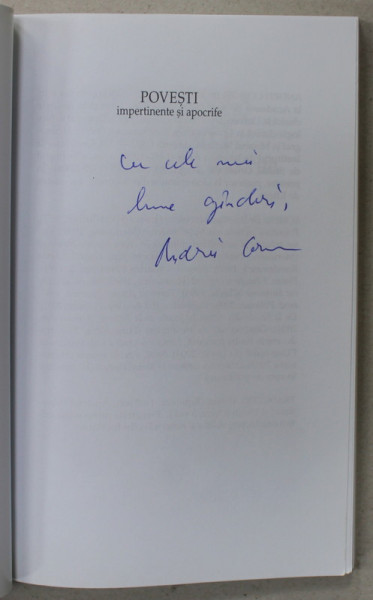 POVEȘTI
impertinente și apocrife
Cu cele mai
bune gânduri,
Andrei Cornea